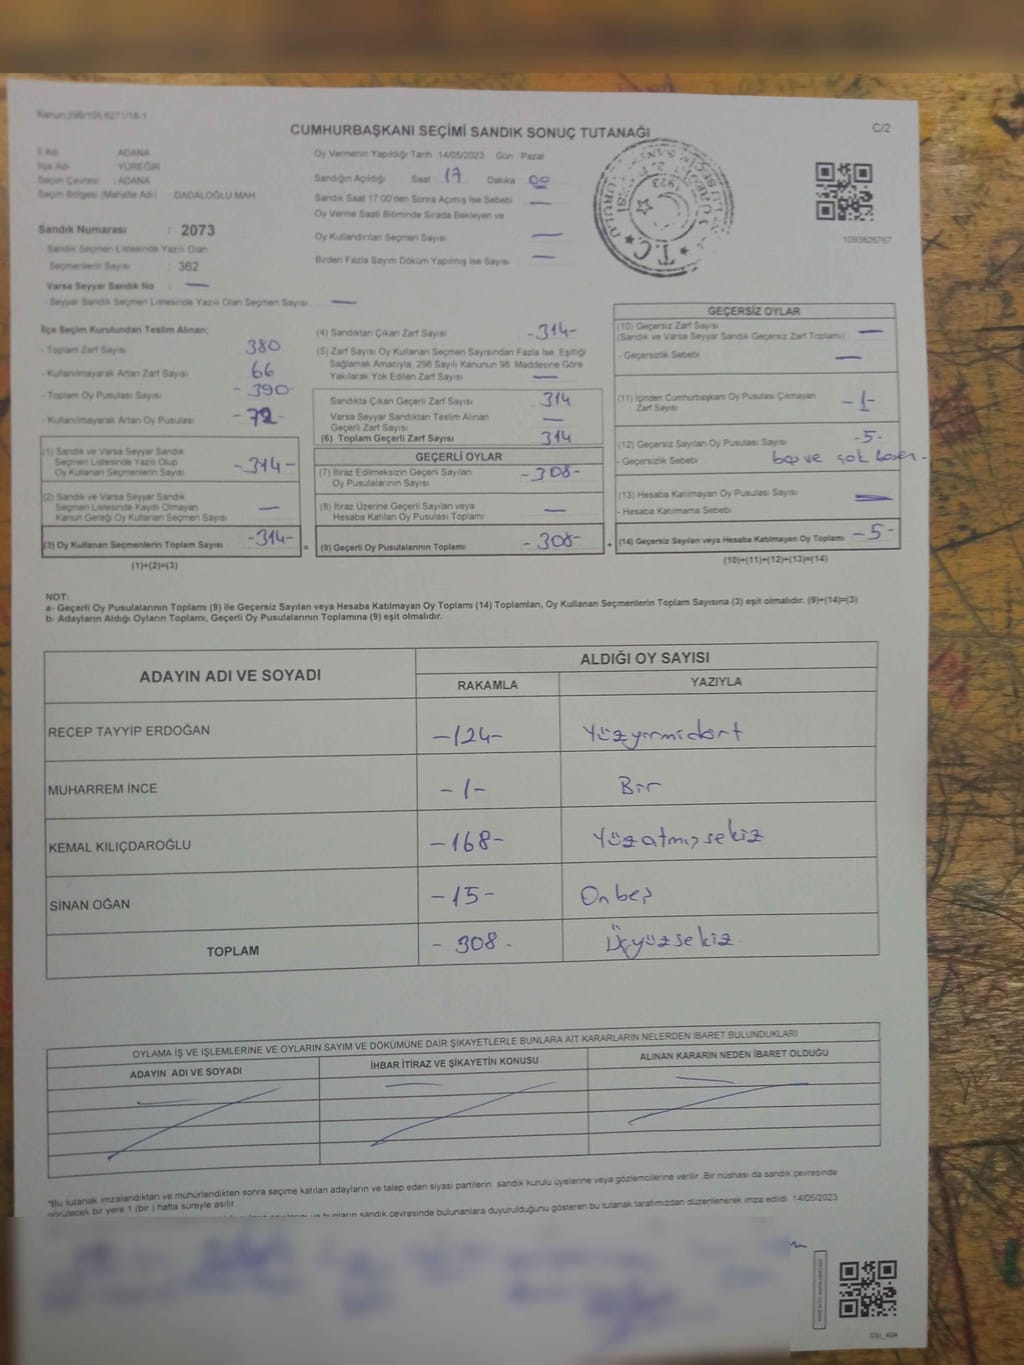 Kanun:298/105,6271/18-1
CUMHURBAŞKANI SEÇİMİ SANDIK SONUÇ TUTANAĞI
C/2
İl Adı : ADANA
İlçe Adı : YÜREĞİR
Seçim Çevresi : ADANA
Seçim Bölgesi (Mahalle Adı) DADALOĞLU MAH
Sandık Numarası : 2073
- Sandık Seçmen Listesinde Yazılı Olan
Seçmenlerin Sayısı : 362
Varsa Seyyar Sandık No : —
- Seyyar Sandık Seçmen Listesinde Yazılı Olan Seçmen Sayısı —
Oy Vermenin Yapıldığı Tarih :14/05/2023 Gün : Pazar
Sandığın Açıldığı Saat 17 Dakika 00
Sandık Saat 17:00'den Sonra Açımış İse Sebebi —
Oy Verme Saati Bitiminde Sırada Bekleyen ve
Oy Kullandırılan Seçmen Sayısı —
Birden Fazla Sayım Döküm Yapılmış İse Sayısı —
T.C.
1093826767
İlçe Seçim Kurulundan Teslim Alınan;
- Toplam Zarf Sayısı 380
- Kullanılmayarak Artan Zarf Sayısı 66
- Toplam Oy Pusulası Sayısı - 390-
- Kullanılmayarak Artan Oy Pusulası - 72 -
(1) Sandık ve Varsa Seyyar Sandık
Seçmen Listesinde Yazılı Olup
Oy Kullanan Seçmenlerin Sayısı - 314 -
(2) Sandık ve Varsa Seyyar Sandık
Seçmen Listesinde Kayıtlı Olmayan
Kanun Gereği Oy Kullanan Seçmen Sayısı —
(3) Oy Kullanan Seçmenlerin Toplam Sayısı -314-
(1)+(2)=(3)
(4) Sandıktan Çıkan Zarf Sayısı -314-
(5) Zarf Sayısı Oy Kullanan Seçmen Sayısından Fazla İse, Eşitliği
Sağlamak Amacıyla, 298 Sayılı Kanunun 98. Maddesine Göre
Yakılarak Yok Edilen Zarf Sayısı —
Sandıkta Çıkan Geçerli Zarf Sayısı 314
Varsa Seyyar Sandıktan Teslim Alınan
Geçerli Zarf Sayısı —
(6) Toplam Geçerli Zarf Sayısı 314
GEÇERLİ OYLAR
(7) İtiraz Edilmeksizin Geçerli Sayılan
Oy Pusulalarının Sayısı -308-
(8) İtiraz Üzerine Geçerli Sayılan veya
Hesaba Katılan Oy Pusulası Toplamı —
= (9) Geçerli Oy Pusulalarının Toplamı - 308-
GEÇERSİZ OYLAR
(10) Geçersiz Zarf Sayısı
(Sandık ve Varsa Seyyar Sandık Geçersiz Zarf Toplamı) —
- Geçersizlik Sebebi —
(11) İçinden Cumhurbaşkanı Oy Pusulası Çıkmayan
Zarf Sayısı - 1 -
(12) Geçersiz Sayılan Oy Pusulası Sayısı -5-
- Geçersizlik Sebebi boş ve çok basan -
(13) Hesaba Katılmayan Oy Pusulası Sayısı —
- Hesaba Katılmama Sebebi
+ (14) Geçersiz Sayılan veya Hesaba Katılmayan Oy Toplamı - 5 -
(10)+(11)+(12)+(13)=(14)
NOT:
a- Geçerli Oy Pusulalarının Toplamı (9) ile Geçersiz Sayılan veya Hesaba Katılmayan Oy Toplamı (14) Toplamları, Oy Kullanan Seçmenlerin Toplam Sayısına (3) eşit olmalıdır. (9)+(14)=(3)
b- Adayların Aldığı Oyların Toplamı, Geçerli Oy Pusulalarının Toplamına (9) eşit olmalıdır.
ADAYIN ADI VE SOYADI
ALDIĞI OY SAYISI
RAKAMLA YAZIYLA
RECEP TAYYİP ERDOĞAN -124- Yüzyirmidört
MUHARREM İNCE - 1 - Bir
KEMAL KILIÇDAROĞLU -168- Yüzatmışsekiz
SİNAN OĞAN - 15 - Onbeş
TOPLAM - 308 - Üçyüzsekiz
OYLAMA İŞ VE İŞLEMLERİNE VE OYLARIN SAYIM VE DÖKÜMÜNE DAİR ŞİKAYETLERLE BUNLARA AİT KARARLARIN NELERDEN İBARET BULUNDUKLARI
ADAYIN ADI VE SOYADI İHBAR İTİRAZ VE ŞİKAYETİN KONUSU ALINAN KARARIN NEDEN İBARET OLDUĞU
*Bu tutanak imzalandıktan ve mühürlendikten sonra seçime katılan adayların ve talep eden siyasi partilerin sandık kurulu üyelerine veya gözlemcilerine verilir. Bir nüshası da sandık çevresinde
görülecek bir yere 1 (bir ) hafta süreyle asılır.
bunların sandık çevresinde bulunanlara duyurulduğunu gösteren bu tutanak tarafımızdan düzenlenerek imza edildi. 14/05/2023